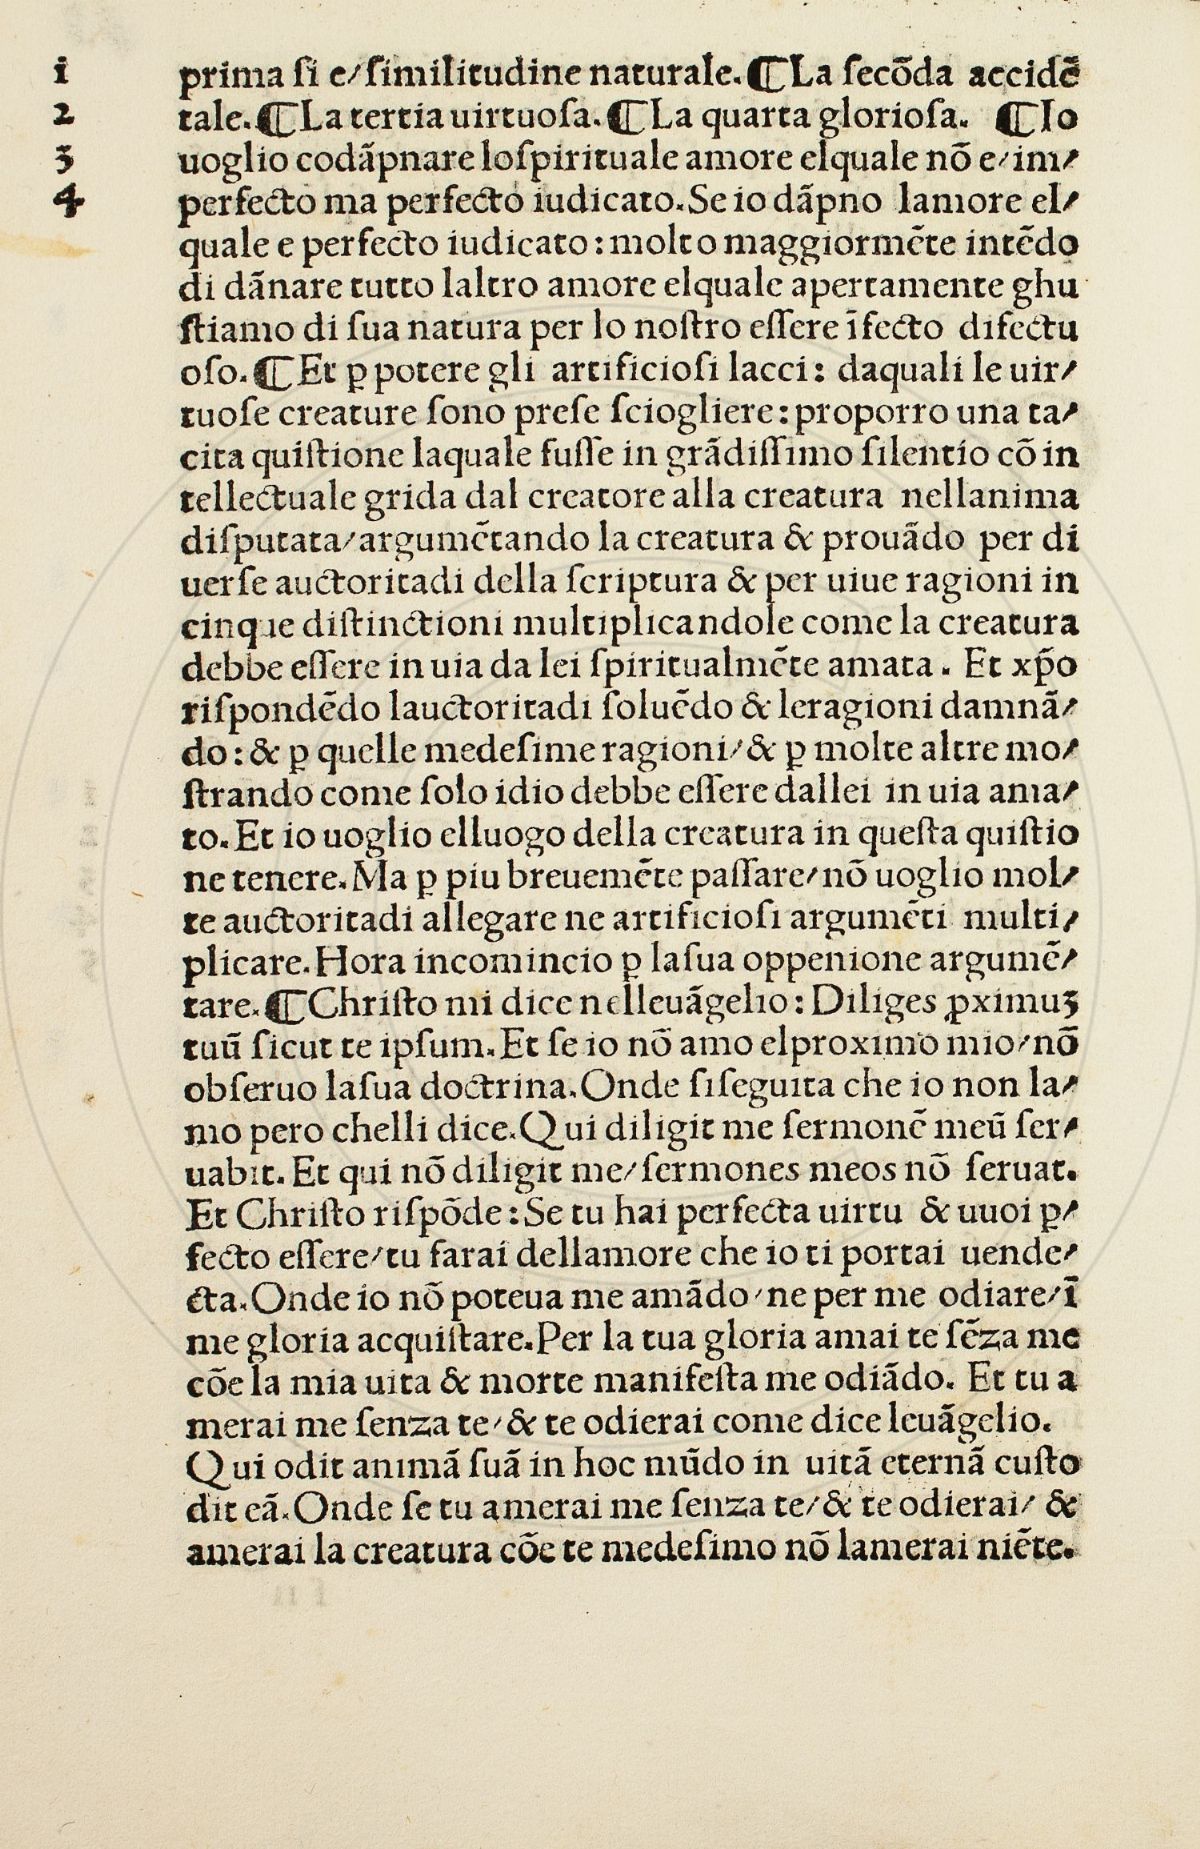 1 prima ſi e/ ſimilitudine naturale. ¶ La ſecōda accidē
2 tale. ¶ La tertia uirtuoſa. ¶ La quarta glorioſa. ¶ Io
3 uoglio codāpnare loſpirituale amore elquale nō e/ im/
4 perfecto ma perfecto iudicato. Se io dāpno lamore el/
quale e perfecto iudicato: molto maggiormēte intēdo
di dānare tutto laltro amore elquale apertamente ghu
ſtiamo di ſua natura per lo noſtro eſſere īfecto difectu
oſo. ¶ Et ꝑ potere gli artificioſi lacci: daquali le uir/
tuoſe creature ſono preſe ſciogliere: proporro una ta/
cita quiſtione laquale fuſſe in grādiſſimo ſilentio cō in
tellectuale grida dal creatore alla creatura nellanima
diſputata/ argumētando la creatura & prouādo per di
uerſe auctoritadi della ſcriptura & per uiue ragioni in
cinque diſtinctioni multiplicandole come la creatura
debbe eſſere in uia da lei ſpiritualmēte amata. Et xp̄o
riſpondēdo lauctoritadi ſoluēdo & leragioni damnā/
do: & ꝑ quelle medeſime ragioni/ & ꝑ molte altre mo/
ſtrando come ſolo idio debbe eſſere dallei in uia ama/
to. Et io uoglio elluogo della creatura in queſta quiſtio
ne tenere. Ma ꝑ piu breuemēte paſſare/ nō uoglio mol/
te auctoritadi allegare ne artificioſi argumēti multi/
plicare. Hora incomincio ꝑ laſua oppenione argumē/
tare. ¶ Chriſto mi dice nelleuāgelio: Diliges ꝓximuꝫ
tuū ſicut te ipſum. Et ſe io nō amo elproximo mio/ nō
obſeruo laſua doctrina. Onde ſiſeguita che io non la/
mo pero chelli dice. Qui diligit me ſermonē meū ſer/
uabit. Et qui nō diligit me/ ſermones meos nō ſeruat.
Et Chriſto riſpōde: Se tu hai perfecta uirtu & uuoi ꝑ/
fecto eſſere/ tu farai dellamore che io ti portai uende/
cta. Onde io nō poteua me amādo/ ne per me odiare/ ī
me gloria acquiſtare. Per la tua gloria amai te ſēza me
cōe la mia uita & morte manifeſta me odiādo. Et tu a
merai me ſenza te/ & te odierai come dice leuāgelio.
Qui odit animā ſuā in hoc mūdo in uitā eternā cuſto
dit eā. Onde ſe tu amerai me ſenza te/ & te odierai/ &
amerai la creatura cōe te medeſimo nō lamerai niēte.